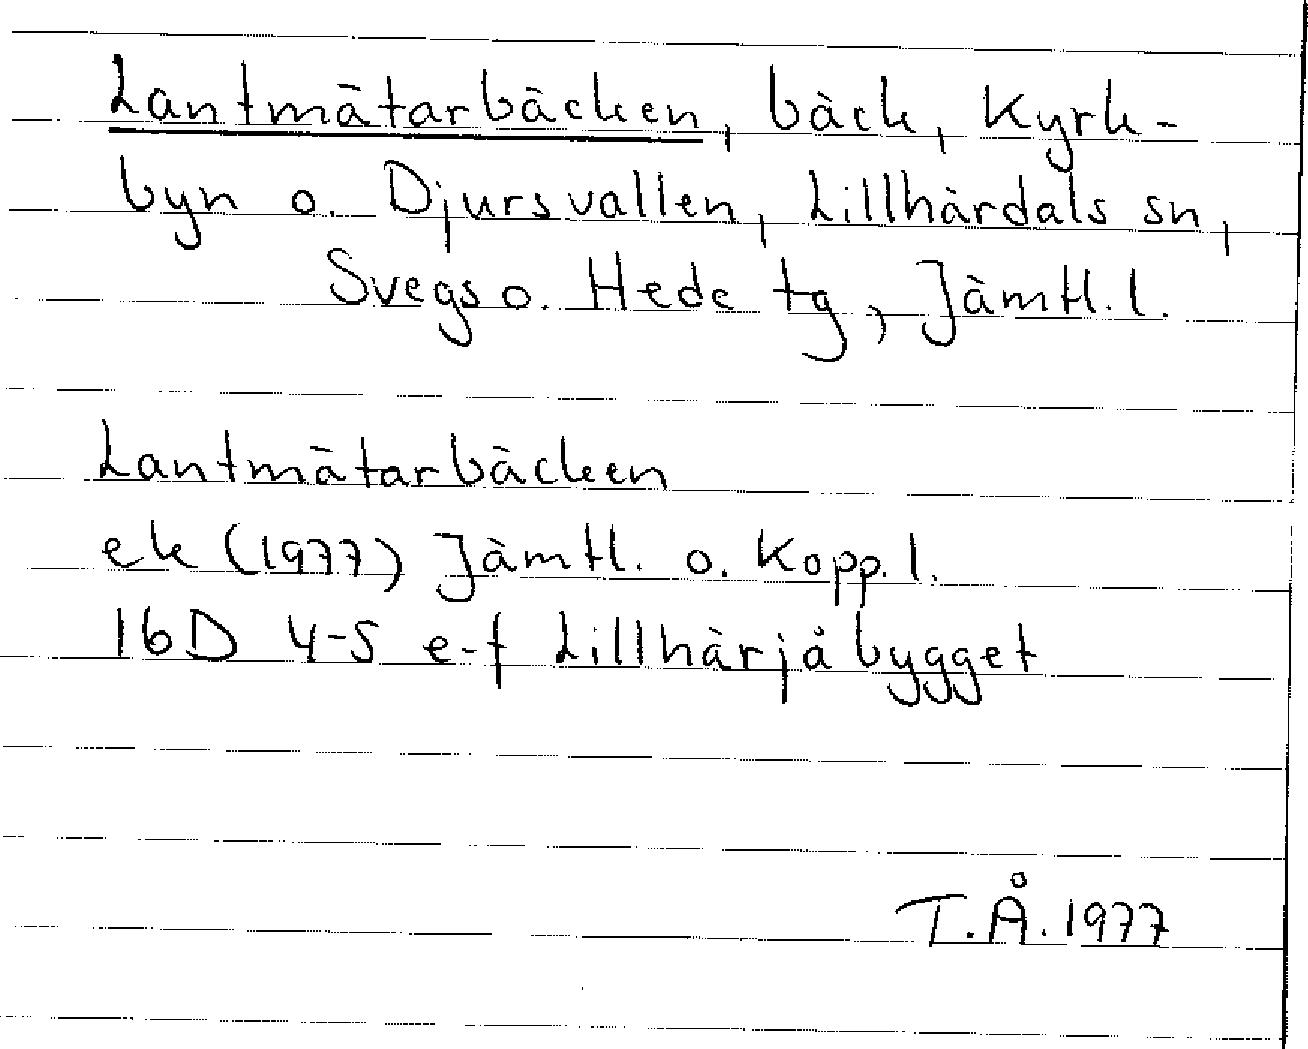 Lantmätarbäcken, bäck, Kyrk-
byn o. Djursvallen, Lillhärdals sn,
Svegs o. Hede tg, Jämtl. l.
Lantmätarbäcken
ek (1977) Jämtl. o. Kopp. l.
16D 4-5 e-f Lillhärjåbygget
T.Å. 1977